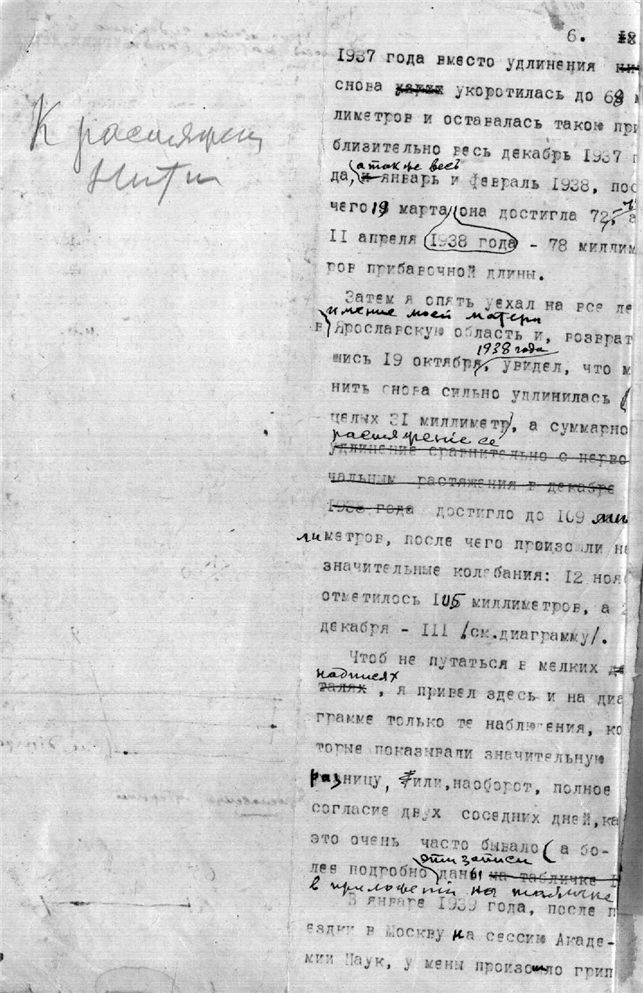 К растяжен
нити
6. 18
1937 года вместо удлинения
снова укоротилась до 69 м
лиметров и оставалась такою при
близительно весь декабрь 1937 г
а также весь
да, и январь и февраль 1938, пос
чего 19 марта она достигла 72, а
II апреля 1938 года - 78 миллим
ров прибавочной длины.
Затем я опять уехал на все ле
имение моей матери
в Ярославскую область и, возврат
1938 года
шись 19 октября, увидел, что м
нить снова сильно удлинилась (
целых 31 миллиметр), а суммарно
расширение ее
удлинение сравнительно с перво
чальным растяжения в декабре
1936 года достигло до 109 мил
лиметров, после чего произошли не
значительные колебания: 12 нояб
отметилось 105 миллиметров, а 2
декабря - III /см.диаграмму/.
Чтоб не путаться в мелких де
надписях
талях, я привел здесь и на диа
грамме только те наблюдения, ко
торые показывали значительную
разницу, или, наоборот, полное
согласие двух соседних дней, ка
это очень часто бывало ( а бо-
эти записи
лее подробно даны на табличке в
в приложении на табличке
В январе 1939 года, после п
ездки в Москву на сессию Акаде-
мии Наук, у мены произошло грип